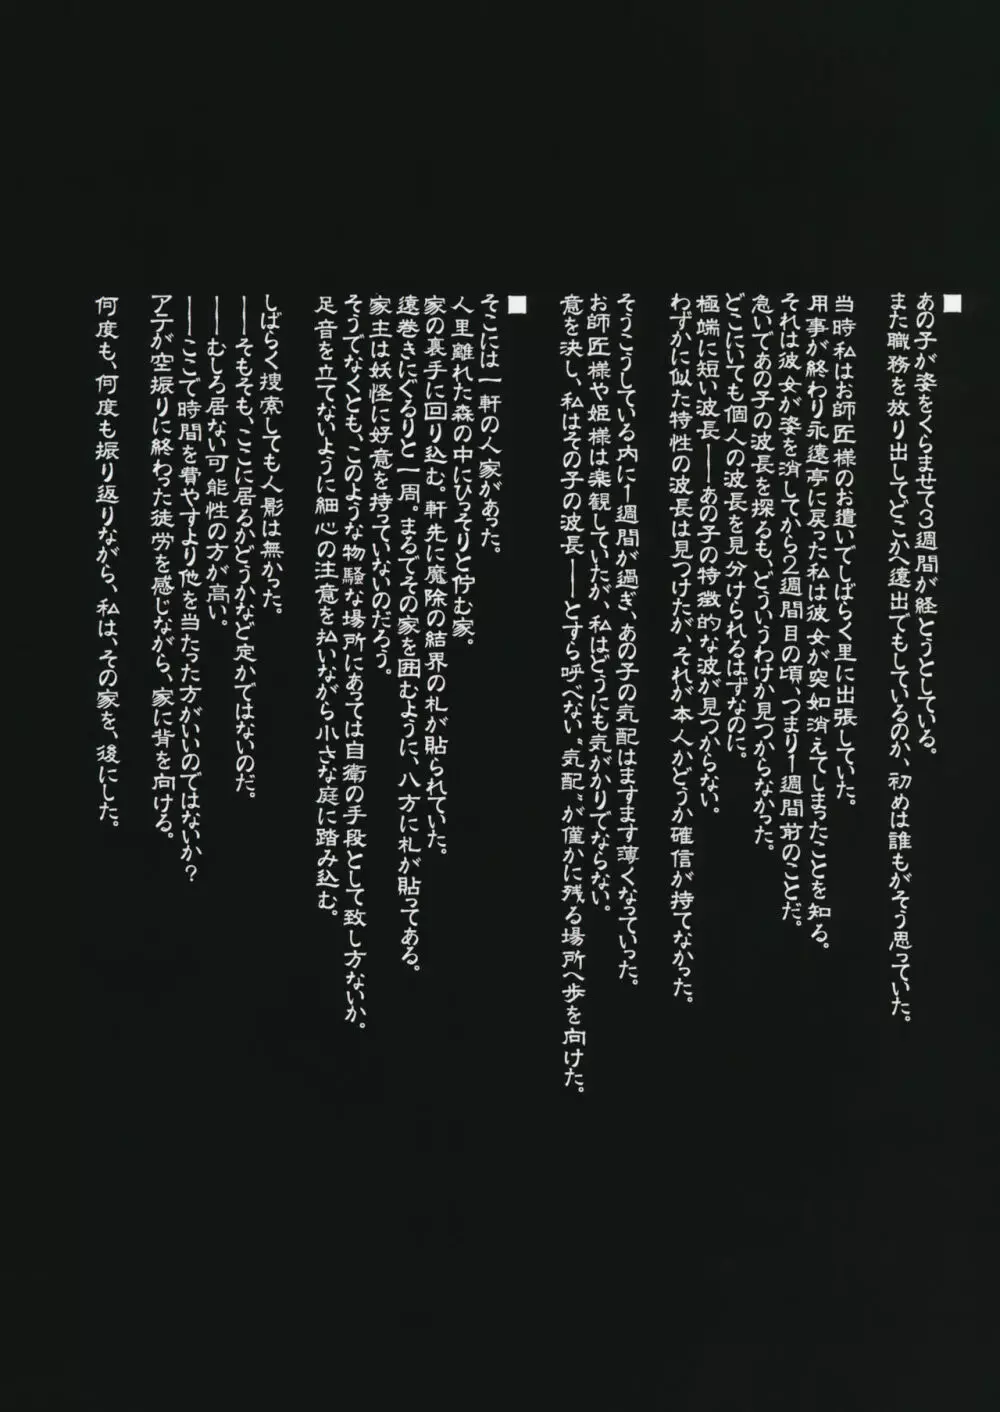 ■
あの子が姿をくらませて3週間が経とうとしている。
また職務を放り出してどこかへ遠出でもしているのか、初めは誰もがそう思っていた。
当時私はお師匠様のお遣いでしばらく里に出張していた。
用事が終わり永遠亭に戻った私は彼女が突如消えてしまったことを知る。
それは彼女が姿を消してから2週間目の頃、つまり1週間前のことだ。
急いであの子の波長を探るも、どういうわけか見つからなかった。
どこにいても個人の波長を見分けられるはずなのに。
極端に短い波長――あの子の特徴的な波が見つからない。
わずかに似た特性の波長は見つけたが、それが本人かどうか確信が持てなかった。
そうこうしている内に1週間が過ぎ、あの子の気配はますます薄くなっていった。
お師匠様や姫様は楽観していたが、私はどうにも気がかりでならない。
意を決し、私はその子の波長――とすら呼べない〝気配〟が僅かに残る場所へ歩を向けた。
■
そこには一軒の人家があった。
人里離れた森の中にひっそりと佇む家。
家の裏手に回り込む。軒先に魔除の結界の札が貼られていた。
遠巻きにぐるりと一周。まるでその家を囲むように、八方に札が貼ってある。
家主は妖怪に好意を持っていないのだろう。
そうでなくとも、このような物騒な場所にあっては自衛の手段として致し方ないか。
足音を立てないように細心の注意を払いながら小さな庭に踏み込む。
しばらく捜索しても人影は無かった。
――そもそも、ここに居るかどうかなど定かではないのだ。
――むしろ居ない可能性の方が高い。
――ここで時間を費やすより他を当たった方がいいのではないか?
アテが空振りに終わった徒労を感じながら、家に背を向ける。
何度も、何度も振り返りながら、私は、その家を、後にした。